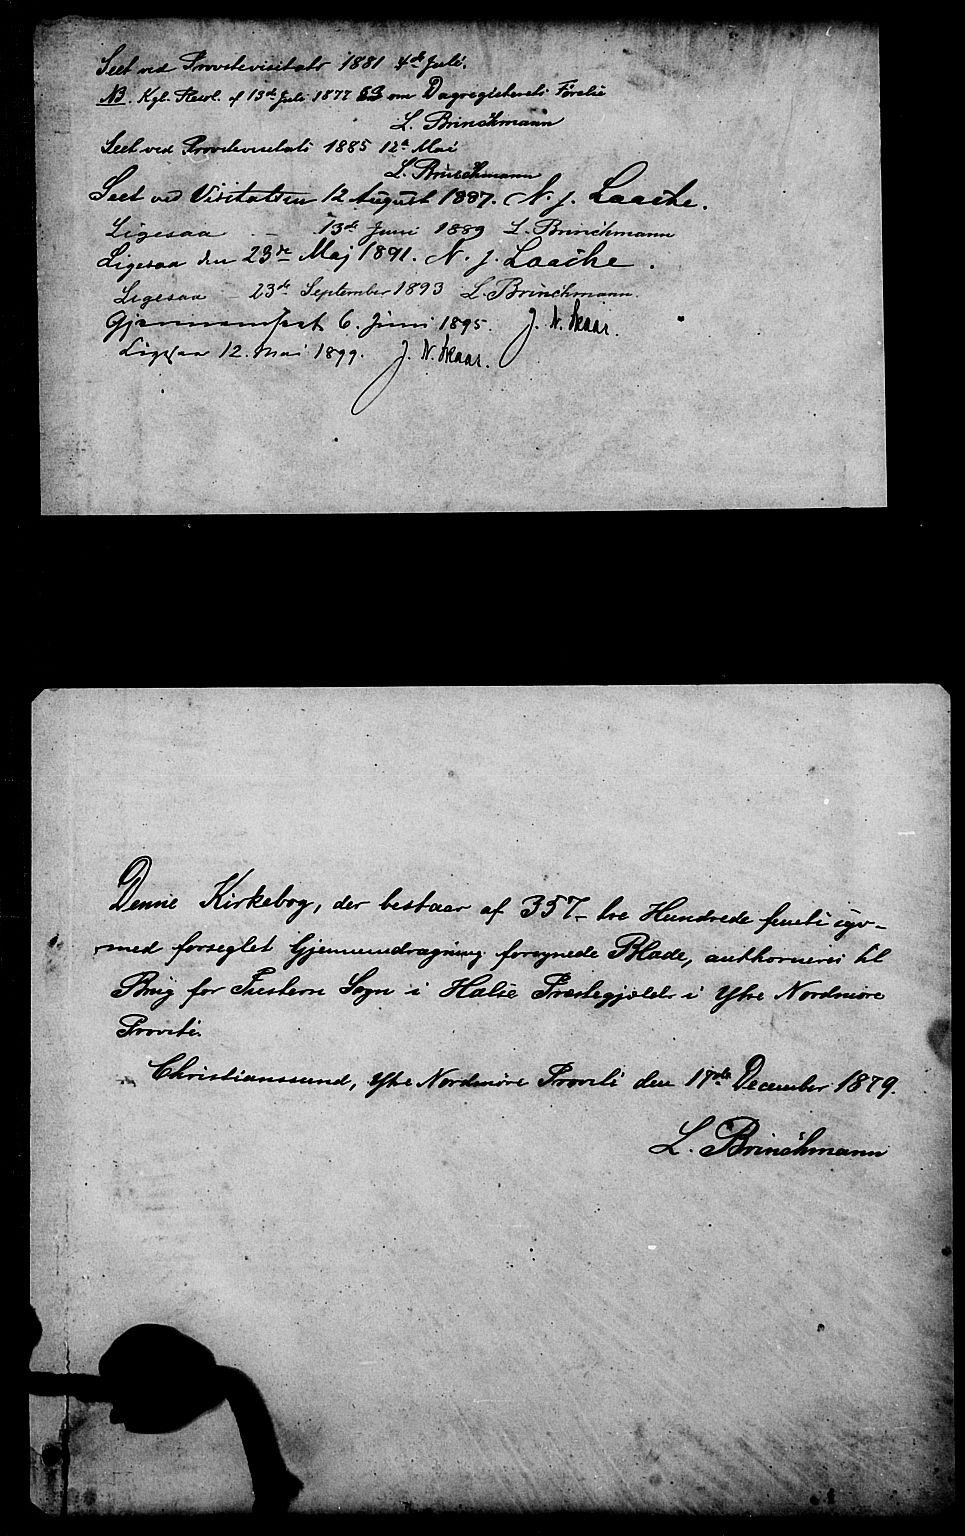 Seet ved Provstevisitats 1881 4de Juli.
NB. Kgl. Resol. af 13de Juli 1877 om Dagregisterets Førelse
L. Brinchmann
Seet ved Provstevisitats 1885 12te Mai
L. Brinchmann
Seet ved Visitatsen 12 August 1887. N. J. Laache.
Ligesaa – 13de Juni 1889 L. Brinchmann
Ligesaa den 23de Maj 1891. N. J. Laache.
Ligesaa – 23de September 1893 L. Brinchmann.
Gjennemseet 6. Juni 1895. J. N. Skaar.
Ligesaa 12. Mai 1899. J. N. Skaar.
Denne Kirkebog, der bestaar af 357 – tre Hundrede femti syv –
med forseglet Gjennemdragning forsynede Blade, authoriseres til
Brug for Sogn i Halse Præstegjeld i Ytre Nordmøre
Provsti.
Christianssund, Ytre Nordmøre Provsti den 17de December 1879.
L. Brinchmann